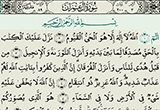 سُورَةُ آلِ عِمْرَانَ
بِسْمِ اللَّهِ الرَّحْمَٰنِ الرَّحِيمِ
الٓمٓ ١ اللَّهُ لَا إِلَٰهَ إِلَّا هُوَ الْحَيُّ الْقَيُّومُ ٢ نَزَّلَ عَلَيْكَ الْكِتَٰبَ
بِالْحَقِّ مُصَدِّقًا لِّمَا بَيْنَ يَدَيْهِ وَأَنزَلَ التَّوْرَىٰةَ وَالْإِنجِيلَ ٣ مِن
قَبْلُ هُدًى لِّلنَّاسِ وَأَنزَلَ الْفُرْقَانَ إِنَّ الَّذِينَ كَفَرُوا بِـَٔايَٰتِ اللَّهِ
لَهُمْ عَذَابٌ شَدِيدٌ وَاللَّهُ عَزِيزٌ ذُو انتِقَامٍ ٤ إِنَّ اللَّهَ لَا يَخْفَىٰ عَلَيْهِ
شَيْءٌ فِي الْأَرْضِ وَلَا فِي السَّمَاءِ ٥ هُوَ الَّذِي يُصَوِّرُكُمْ